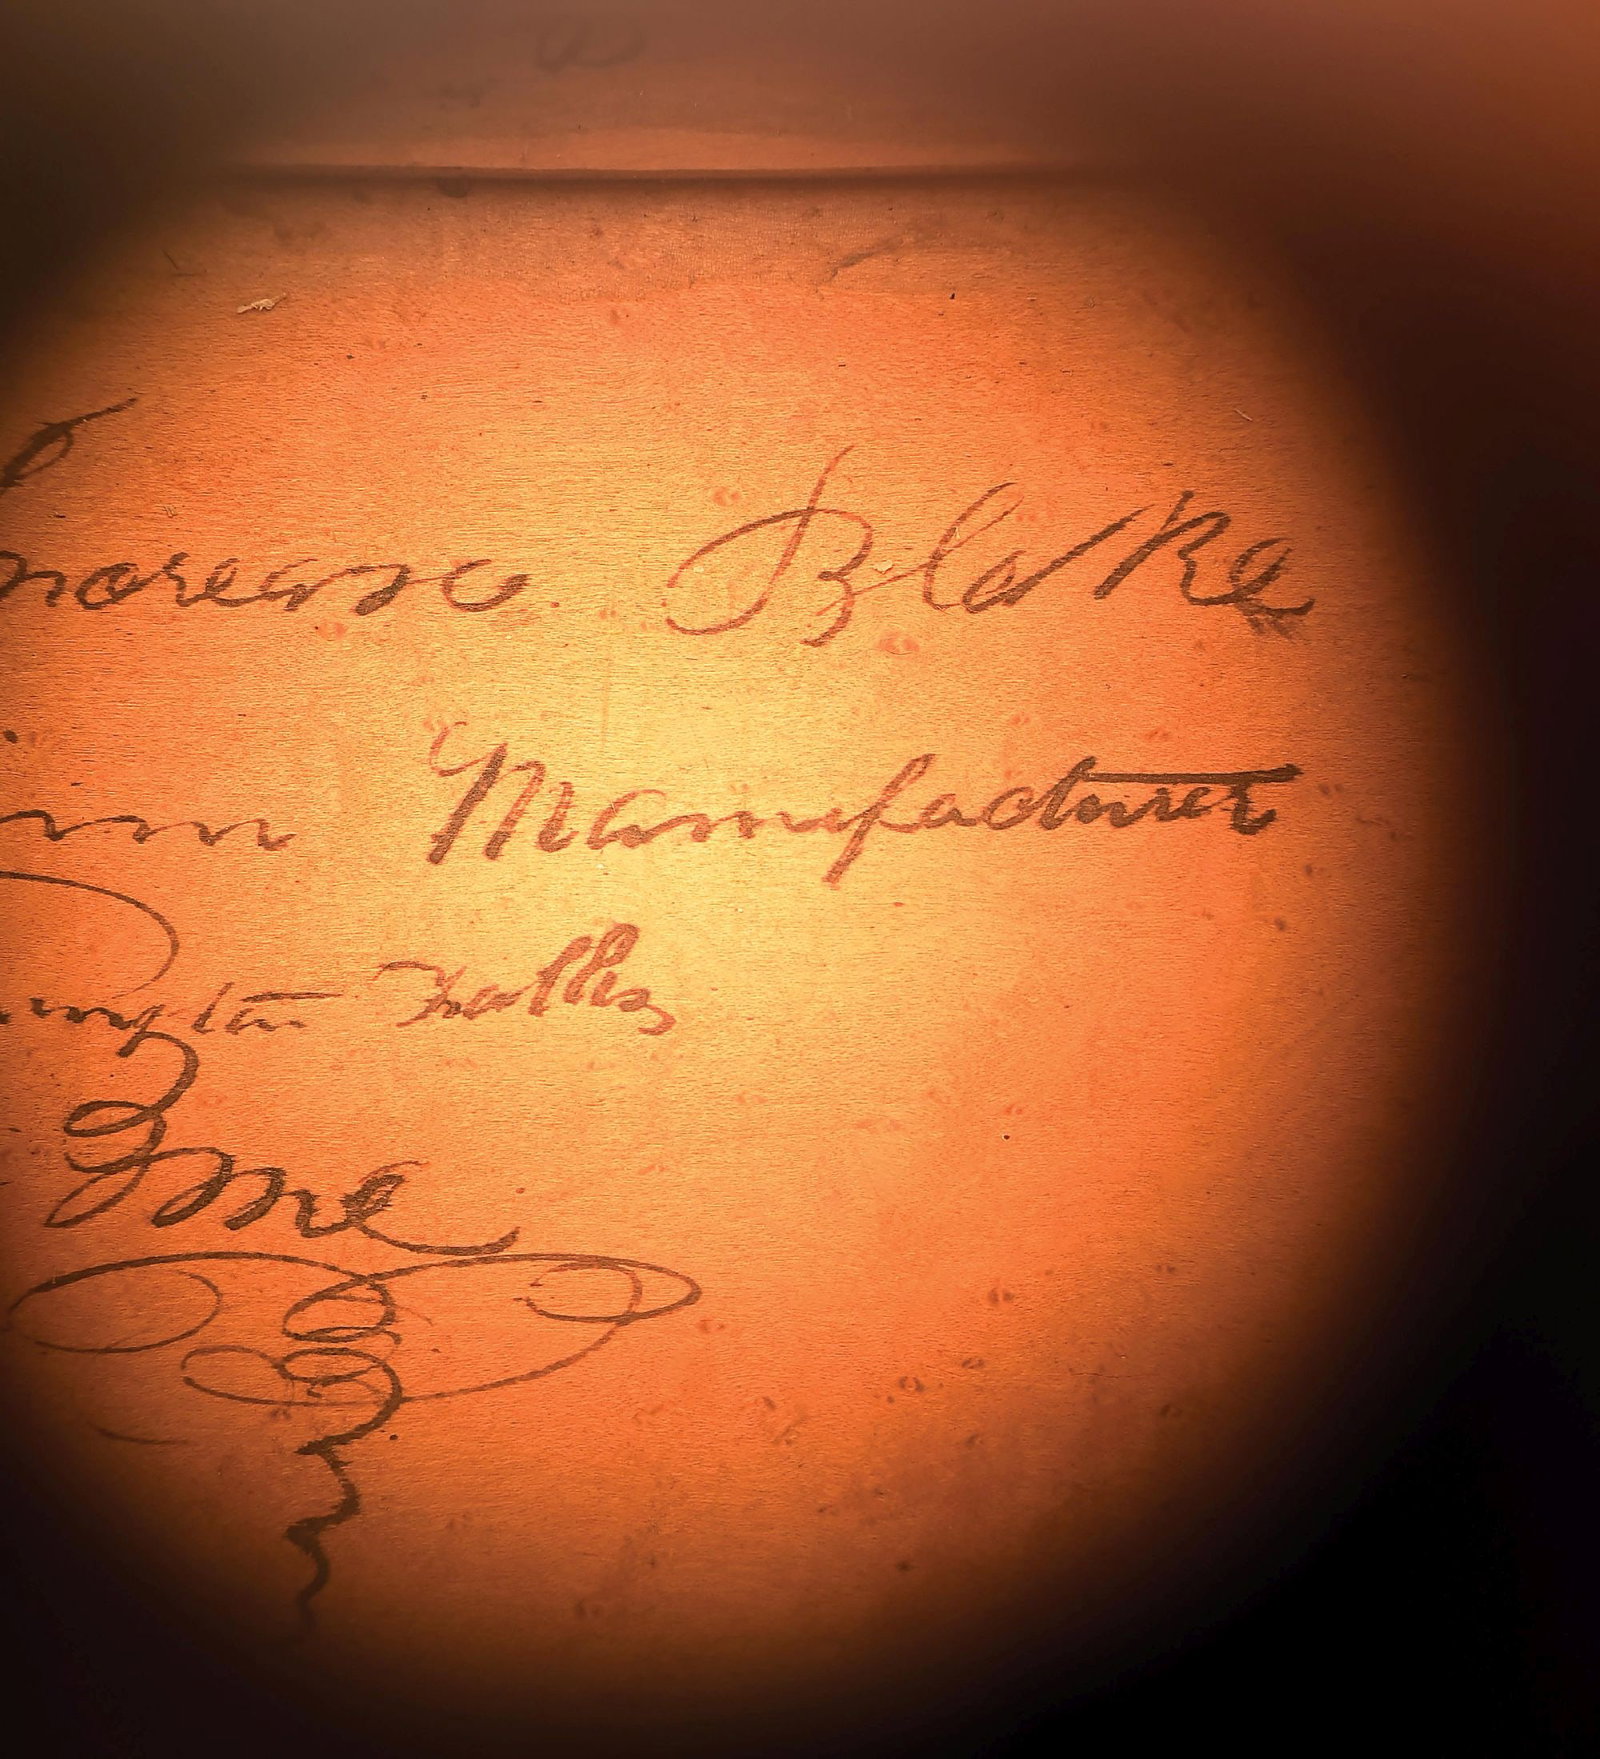 Increase Blake
Manufacturer
ington Falls
Me